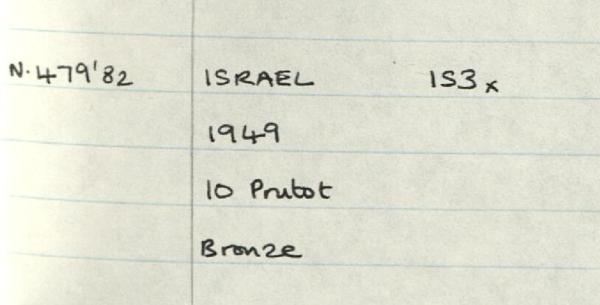 N.479'82 ISRAEL IS3x
1949
10 Prutot
Bronze